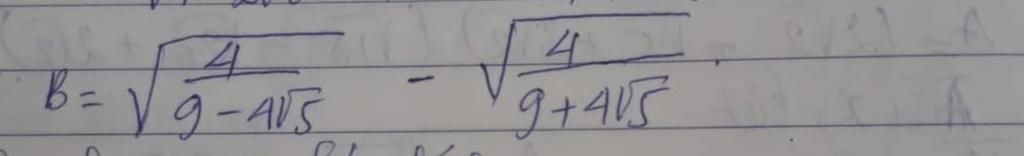 B = √(4/(9-4√5)) - √(4/(9+4√5)).